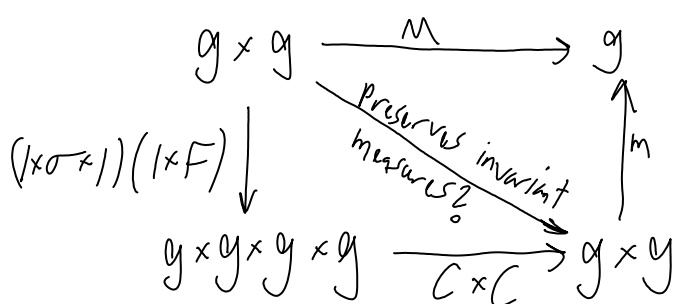 g × g M g
(1×σ×1)(1×F) preserves invariant measures? m
g × g × g × g C × C g × g